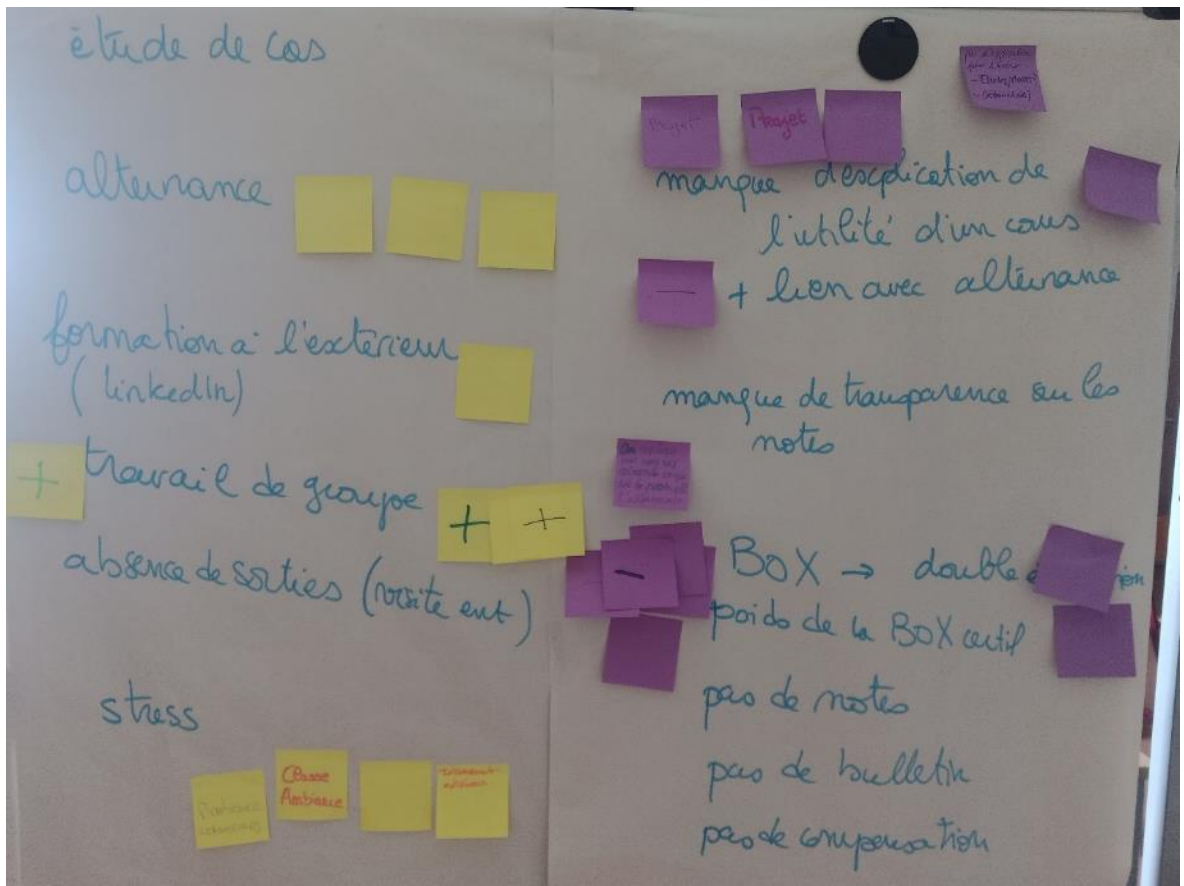 étude de cas
alternance
formation à l'extérieur
(linkedIn)
+ travail de groupe + +
absence de sorties (visite ent)
stress
Classe
Ambiance
Projet
manque d'explication de
l'utilité d'un cours
— + lien avec alternance
manque de transparence sur les
notes
— BOX → double
poids de la BOX certif
pas de notes
pas de bulletin
pas de compensation